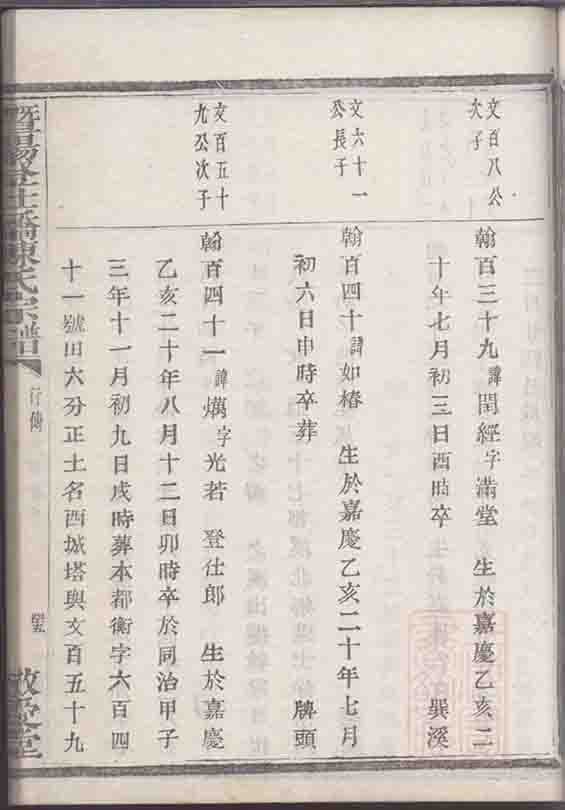 文百八公
次子
翰百三十九諱閏經字滿堂 生於嘉慶乙亥二
十年七月初三日酉時卒 巽溪
文六十一
公長子
翰百四十諱如椿 生於嘉慶乙亥二十年七月
初六日申時卒葬 牌頭
文百五十
九公次子
翰百四十一諱燤字光若 登仕郎 生於嘉慶
乙亥二十年八月十二日卯時卒於同治甲子
三年十一月初九日戌時葬本都衡字六百四
十一號田六分正土名西城塔與文百五十九
暨陽 橋陳氏宗譜
行傳
敬愛堂